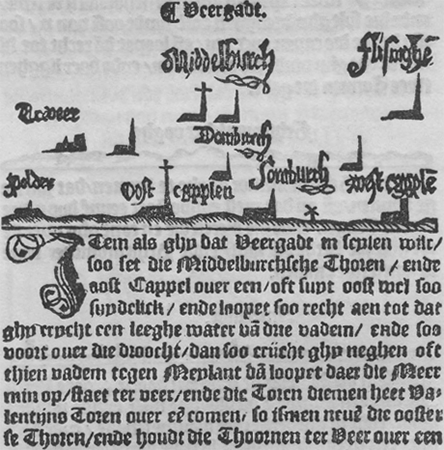 ¶ Veergadt.
Middelburch
Flisinghē
Traveer
Domburch
Polder
Oost capplen
Somburch
west capple
ITem als ghy dat Veergadt in seylen wilt/
soo set die Middelburchsche Thoren / ende
aost Cappel over een / oft suyt oost wel soo
suydelick / ende loopet soo recht aen tot dat
ghy crycht een leeghe water vā drie vadem / ende soo
voort over die droocht / dan soo crücht ghy neghen oft
thien vadem tegen Meylant dā loopet daer die Meer
min op / staet ter veer / ende die Toren diemen heet Va-
lentijns Toren over eē comen / so ismen neuē die ooster
se Thoren / ende houdt die Thoornen ter Veer over een